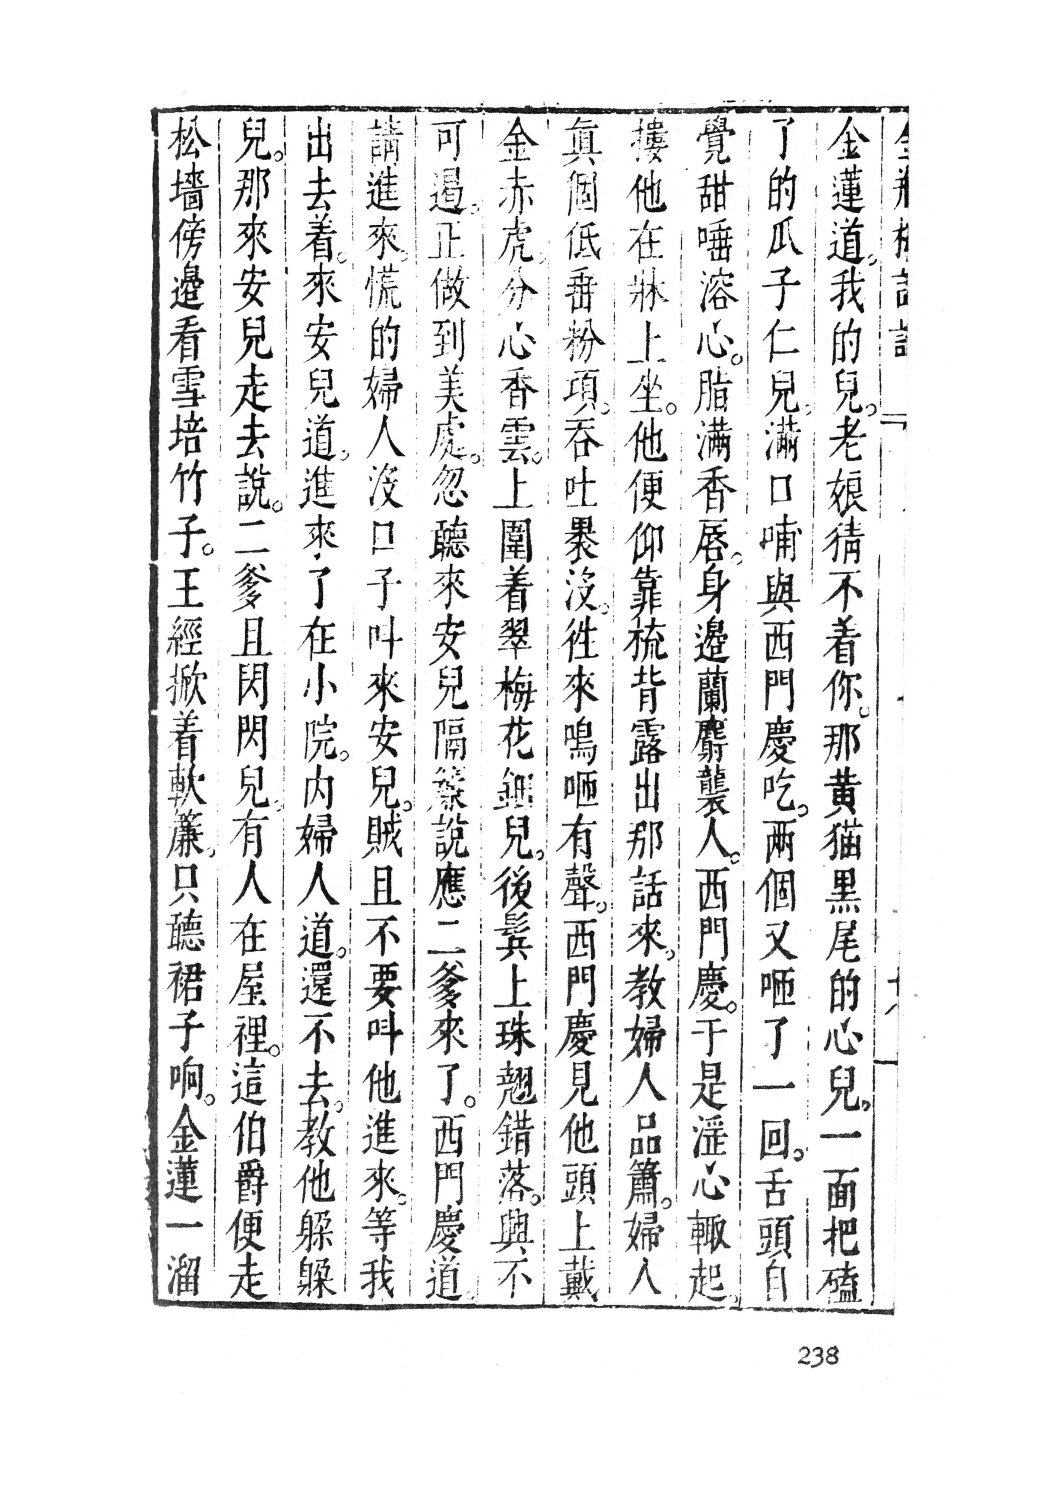 金瓶梅詞話
金蓮道。我的兒。老娘猜不着你。那黄猫黒尾的心兒。一面把磕
了的瓜子仁兒。滿口哺與西門慶吃。兩個又咂了一回。舌頭自
覺甜唾溶心。脂滿香唇。身邉蘭麝襲人。西門慶。于是淫心輙起。
摟他在牀上坐。他便仰靠梳背露出那話來。教婦人品簫。婦人
真個低垂粉項。吞吐裹沒。徃來鳴咂有聲。西門慶見他頭上戴
金赤虎。分心香雲。上圍着翠梅花鈿兒。後鬂上珠翹錯落。興不
可遏。正做到美處。忽聽來安兒隔簾說應二爹來了。西門慶道
請進來。慌的婦人沒口子呌來安兒。賊且不要呌他進來。等我
出去着。來安兒道。進來了在小院。内婦人道。還不去。教他躱躱
兒。那來安兒走去說。二爹且閃閃兒。有人在屋裡。這伯爵便走
松墻傍邉看雪培竹子。王經掀着軟簾。只聽裙子响。金蓮一溜
238